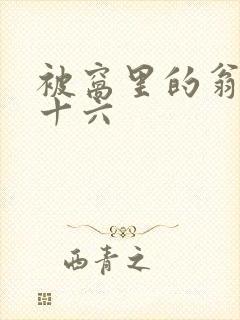 被窝里的翁
十六
西青之